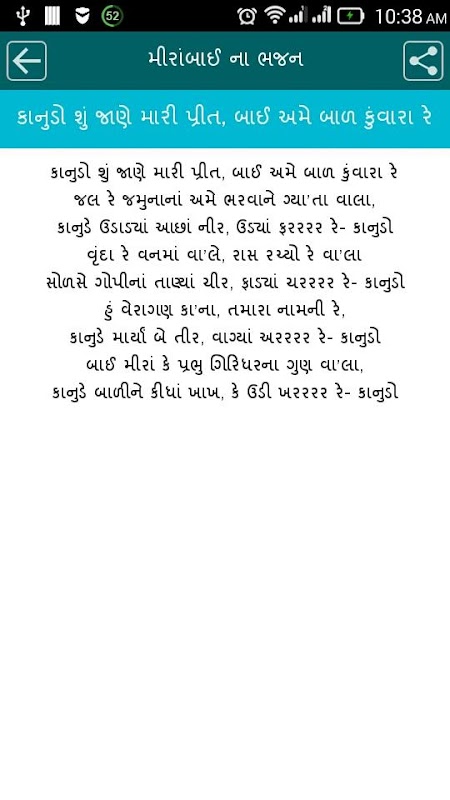 52
10:38 AM
મીરાંબાઈ ના ભજન
કાનુડો શું જાણે મારી પ્રીત, બાઈ અમે બાળ કુંવારા રે
કાનુડો શું જાણે મારી પ્રીત, બાઈ અમે બાળ કુંવારા રે
જલ રે જમુનાનાં અમે ભરવાને ગ્યા'તા વાલા,
કાનુડે ઉડાડ્યાં આછાં નીર, ઉડ્યાં ફરરરર રે- કાનુડો
વૃંદા રે વનમાં વા'લે, રાસ રચ્યો રે વા'લા
સોળસે ગોપીનાં તાણ્યાં ચીર, ફાડ્યાં ચરરરર રે- કાનુડો
હું વેરાગણ કા'ના, તમારા નામની રે,
કાનુડે માર્યાં બે તીર, વાગ્યાં અરરરર રે- કાનુડો
બાઈ મીરાં કે પ્રભુ ગિરિધરના ગુણ વા'લા,
કાનુડે બાળીને કીધાં ખાખ, કે ઉડી ખરરરર રે- કાનુડો